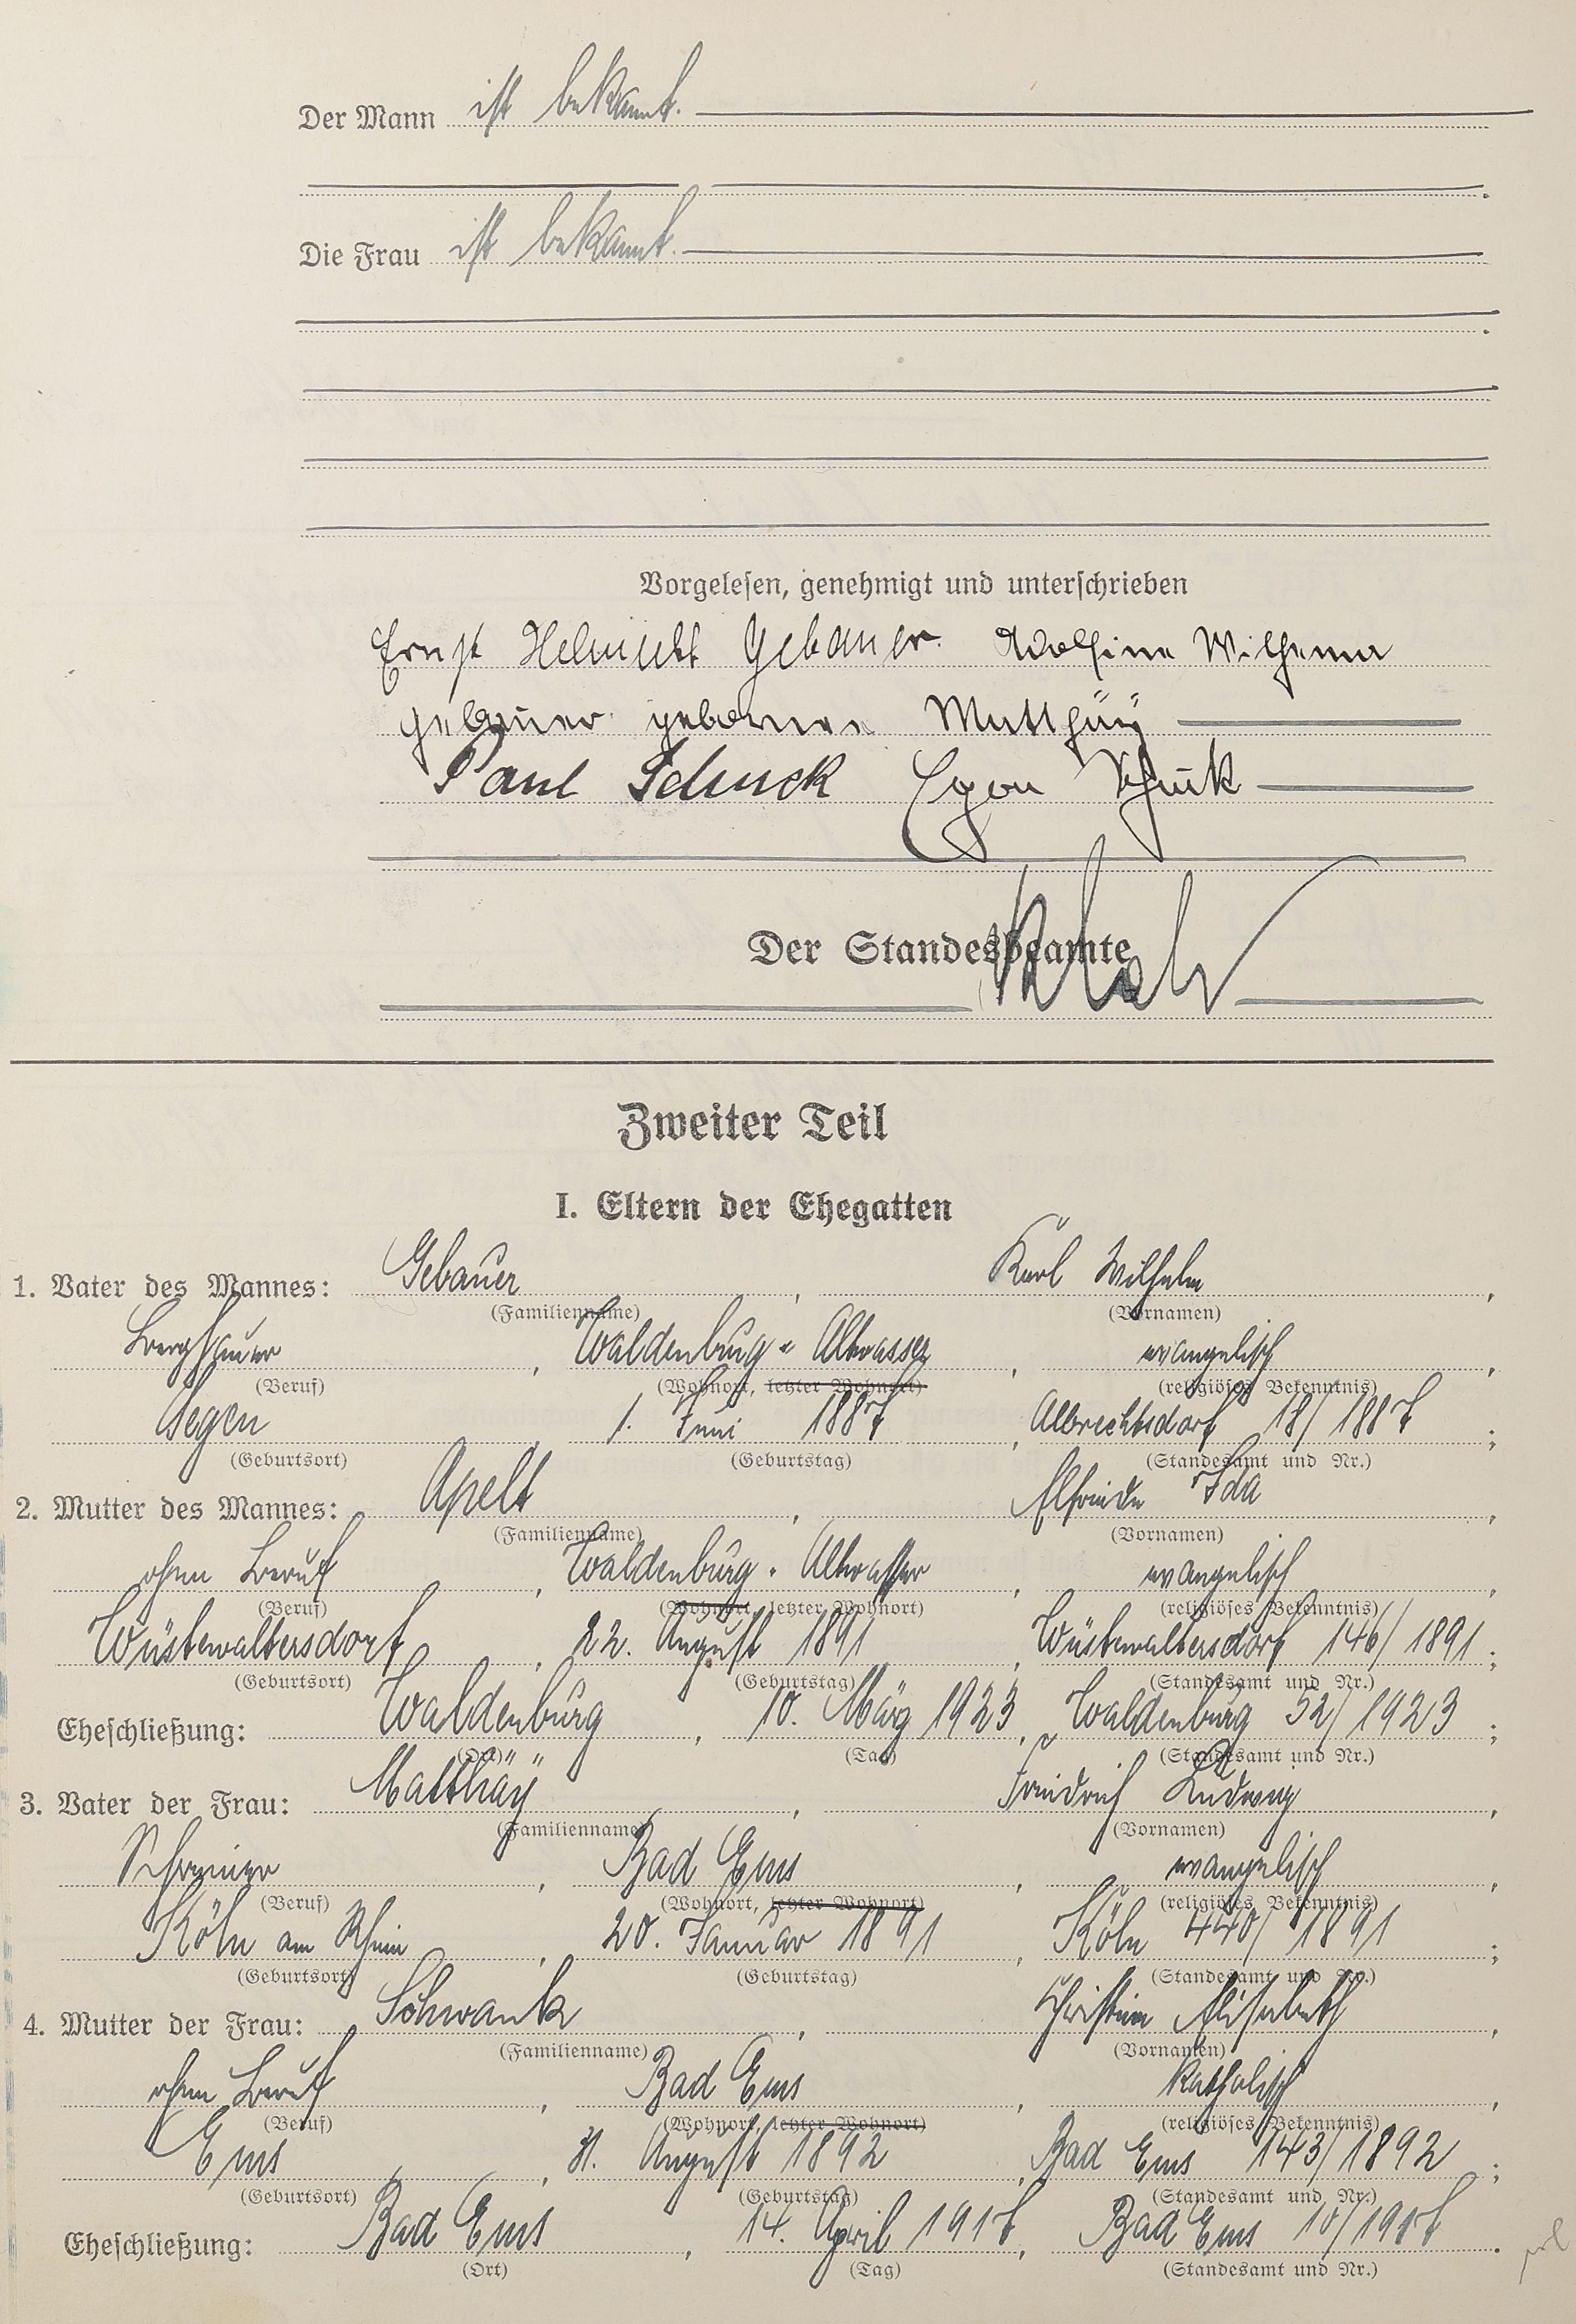 Der Mann ist bekannt.
Die Frau ist bekannt.
Vorgelesen, genehmigt und unterschrieben
Ernst Helmuth Gebauer. Adolfine Wilhema
Gebauer geborene Matthäÿ
Paul Schuck Egon Schuck
Der Standesbeamte
Zweiter Teil
I. Eltern der Ehegatten
1. Vater des Mannes: Gebauer, Karl Wilhelm,
(Familienname) (Vornamen)
Berghauer, Waldenburg-Altwasser, evangelisch,
(Beruf) (Wohnort, letzter Wohnort) (religiöses Bekenntnis)
Segen, 1. Juni 1887, Albrechtsdorf 18/1887;
(Geburtsort) (Geburtstag) (Standesamt und Nr.)
2. Mutter des Mannes: Apelt, Elfriede Ida,
(Familienname) (Vornamen)
ohne Beruf, Waldenburg-Altwasser, evangelisch,
(Beruf) (Wohnort, letzter Wohnort) (religiöses Bekenntnis)
Wüstewaltersdorf, 22. August 1891, Wüstewaltersdorf 146/1891;
(Geburtsort) (Geburtstag) (Standesamt und Nr.)
Eheschließung: Waldenburg, 10. März 1923, Waldenburg 52/1923;
(Ort) (Tag) (Standesamt und Nr.)
3. Vater der Frau: Matthäÿ, Friedrich Ludwig,
(Familienname) (Vornamen)
Schreiner, Bad Ems, evangelisch,
(Beruf) (Wohnort, letzter Wohnort) (religiöses Bekenntnis)
Köln am Rhein, 20. Januar 1891, Köln 440/1891;
(Geburtsort) (Geburtstag) (Standesamt und Nr.)
4. Mutter der Frau: Schwank, Christine Elisabeth,
(Familienname) (Vornamen)
ohne Beruf, Bad Ems, katholisch,
(Beruf) (Wohnort, letzter Wohnort) (religiöses Bekenntnis)
Ems, 31. August 1892, Bad Ems 143/1892;
(Geburtsort) (Geburtstag) (Standesamt und Nr.)
Eheschließung: Bad Ems, 14. April 1917, Bad Ems 10/1917.
(Ort) (Tag) (Standesamt und Nr.)